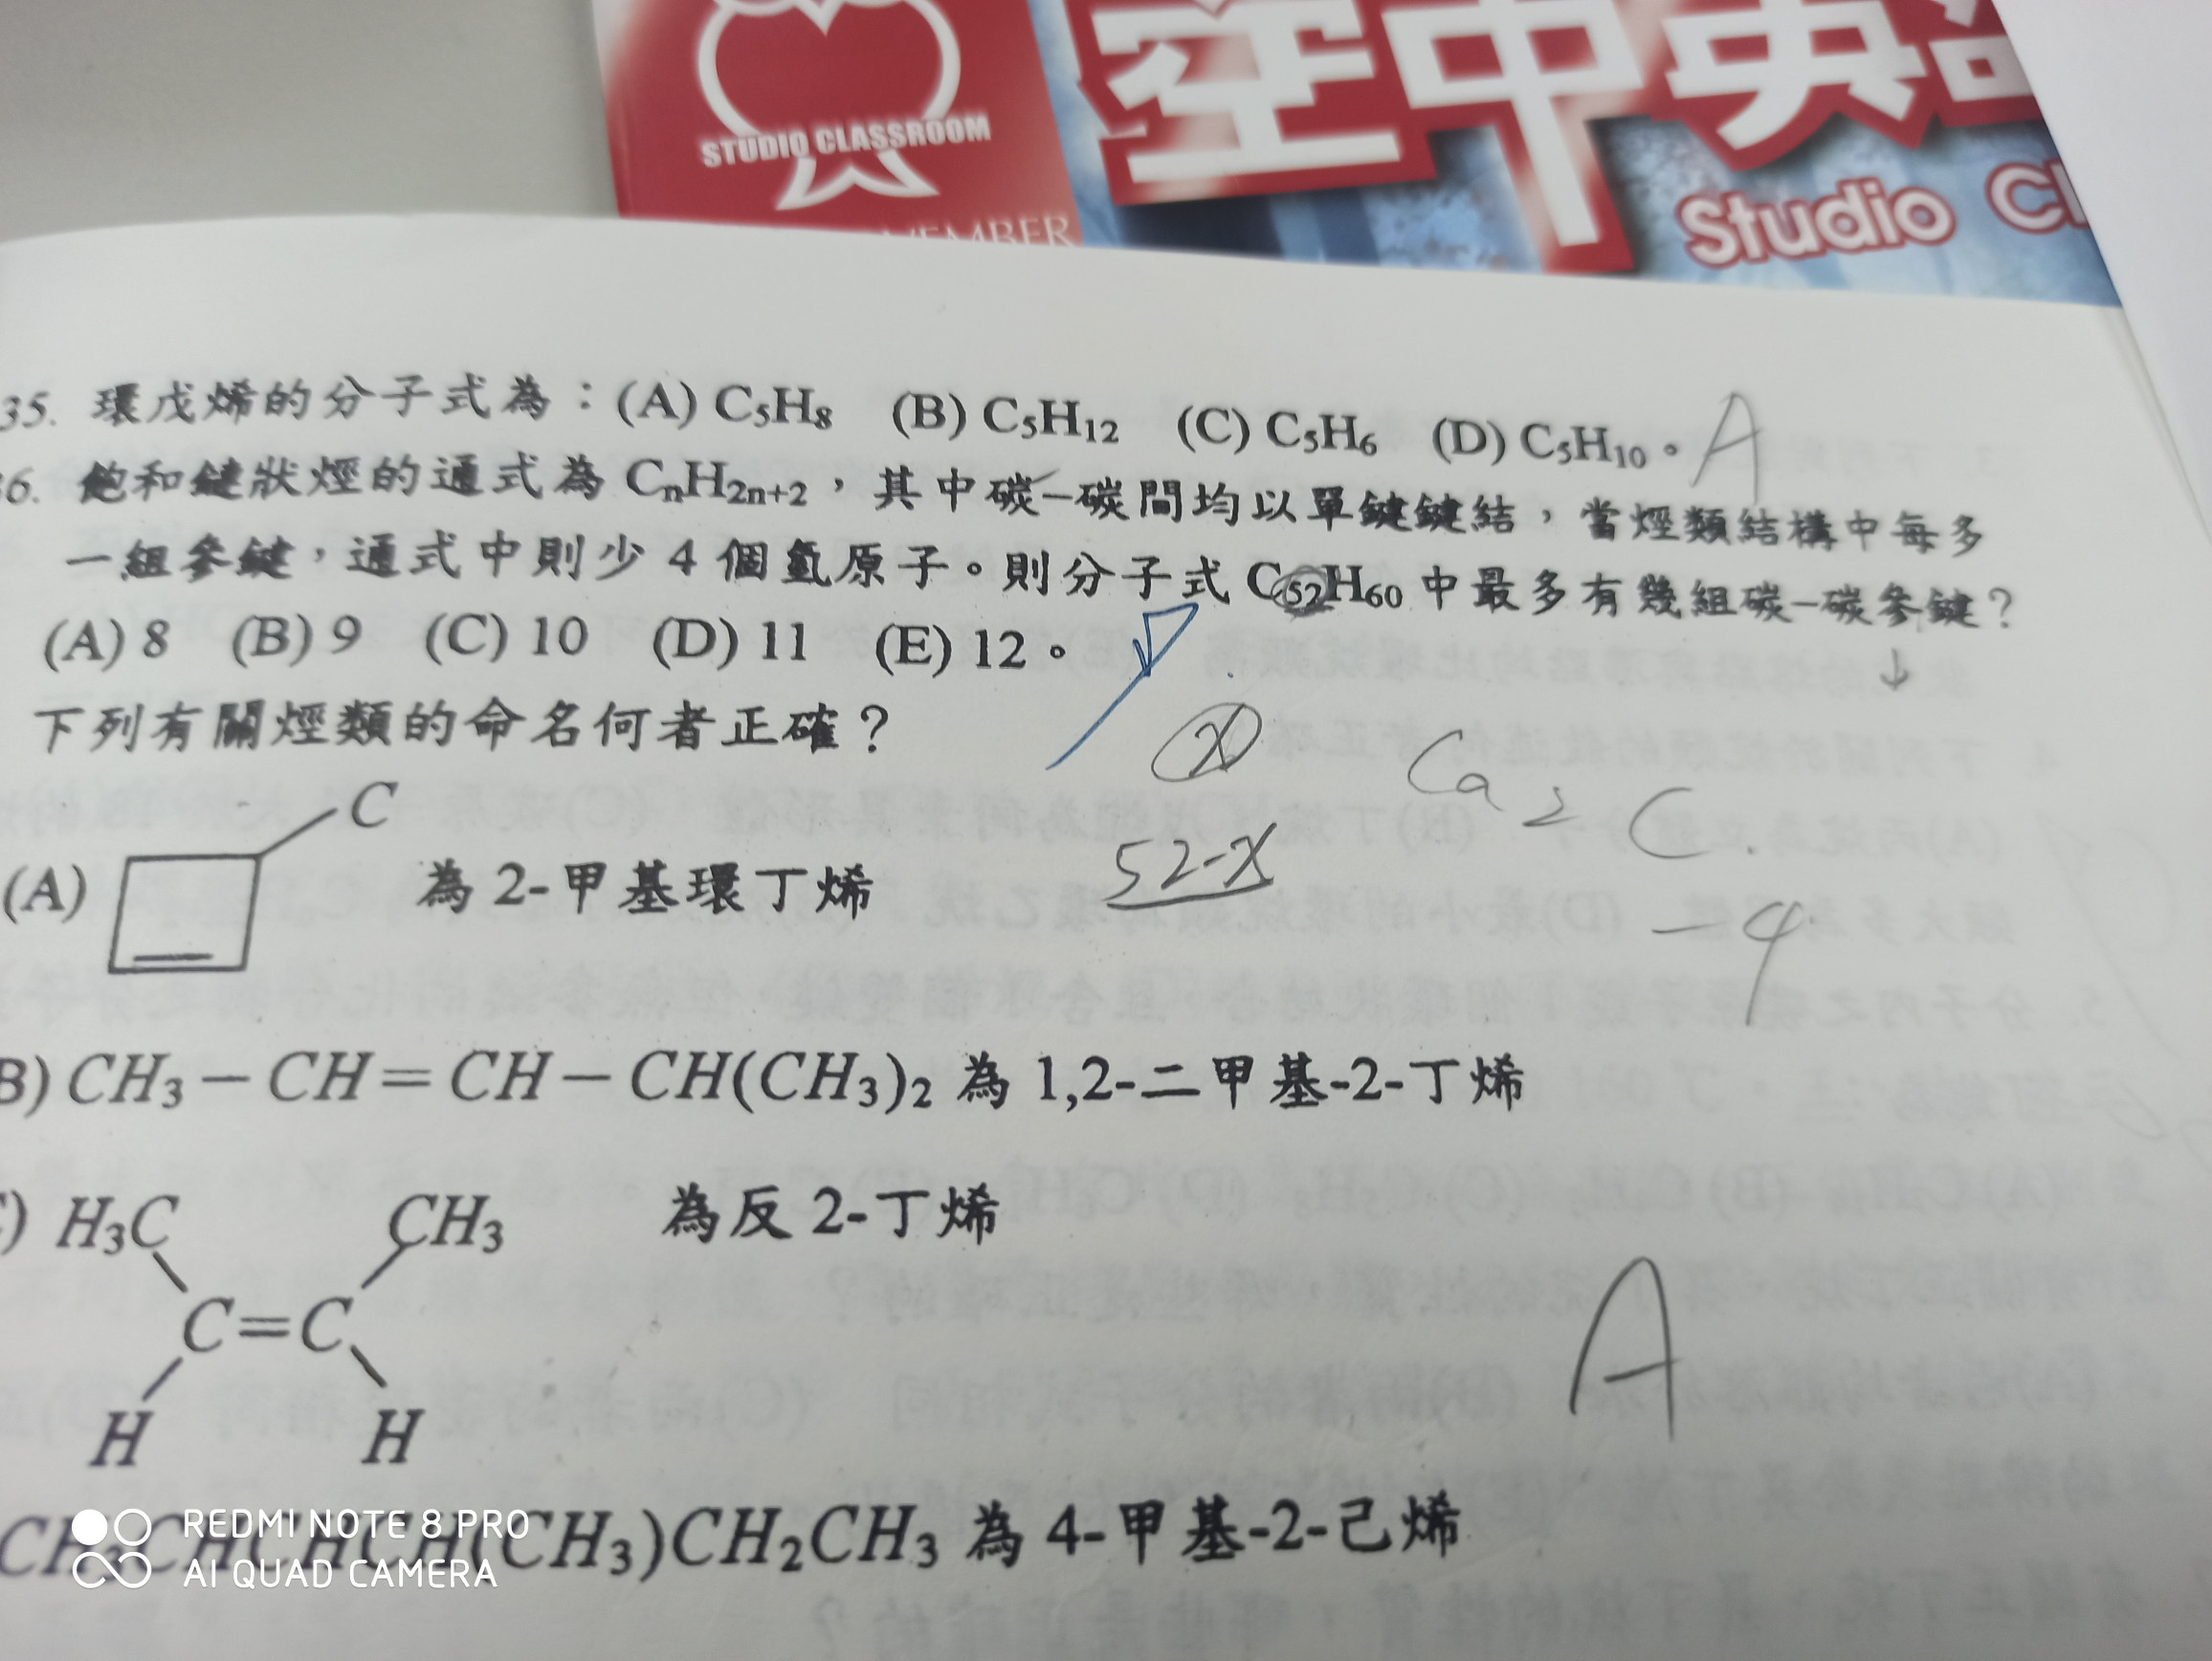 STUDIO CLASSROOM
空中英
Studio Cl
VEMBER
35. 環戊烯的分子式為：(A) C₅H₈ (B) C₅H₁₂ (C) C₅H₆ (D) C₅H₁₀。 A
36. 飽和鏈狀烴的通式為 CₙH₂ₙ₊₂，其中碳–碳間均以單鍵鍵結，當烴類結構中每多
一組參鍵，通式中則少 4 個氫原子。則分子式 C₅₂H₆₀ 中最多有幾組碳–碳參鍵？
(A) 8 (B) 9 (C) 10 (D) 11 (E) 12。
下列有關烴類的命名何者正確？
X
52-X
C
-4
(A) C 為 2-甲基環丁烯
B) CH₃ – CH = CH – CH(CH₃)₂ 為 1,2-二甲基-2-丁烯
) H₃C CH₃ 為反 2-丁烯
C=C
H H
A
CH₃CHCHCH(CH₃)CH₂CH₃ 為 4-甲基-2-己烯
REDMI NOTE 8 PRO
AI QUAD CAMERA